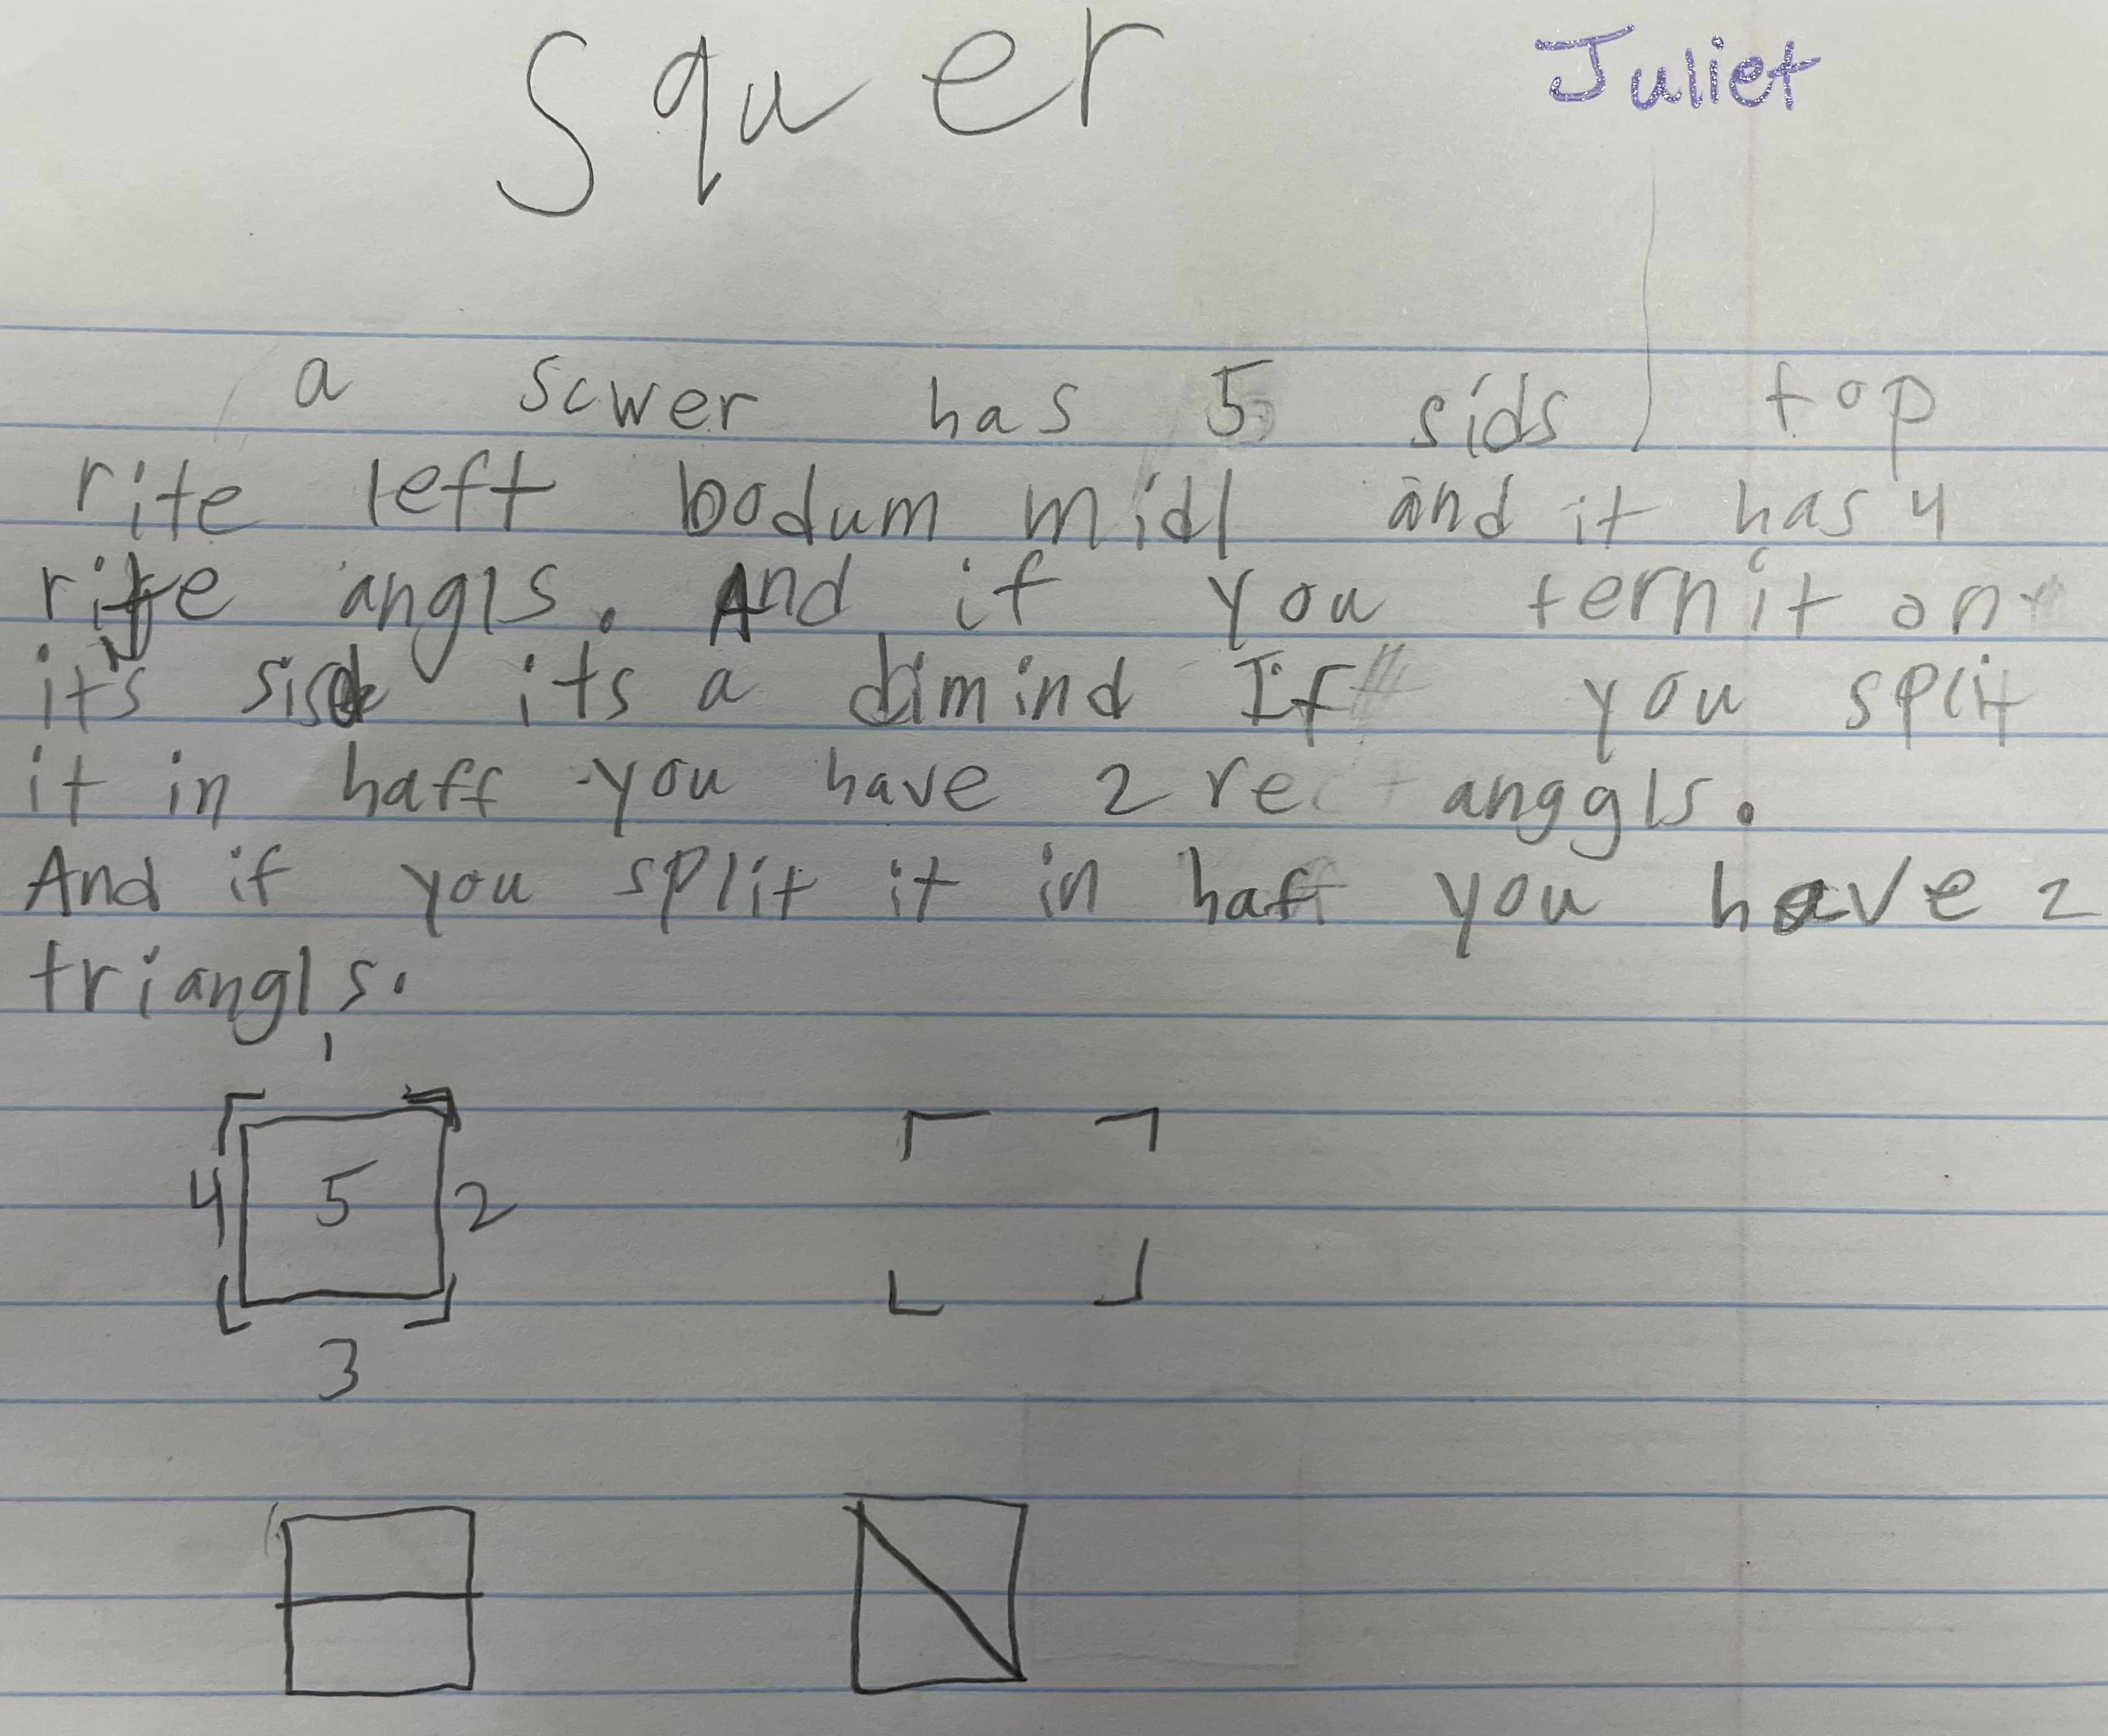 Squer Juliet
a scwer has 5 sids top
rite left bodum midl and it has 4
rite angls. And if you tern it on
it's side its a dimind If you split
it in haff you have 2 rectanggls.
And if you split it in haff you have 2
triangls.
1
4 5 2
3